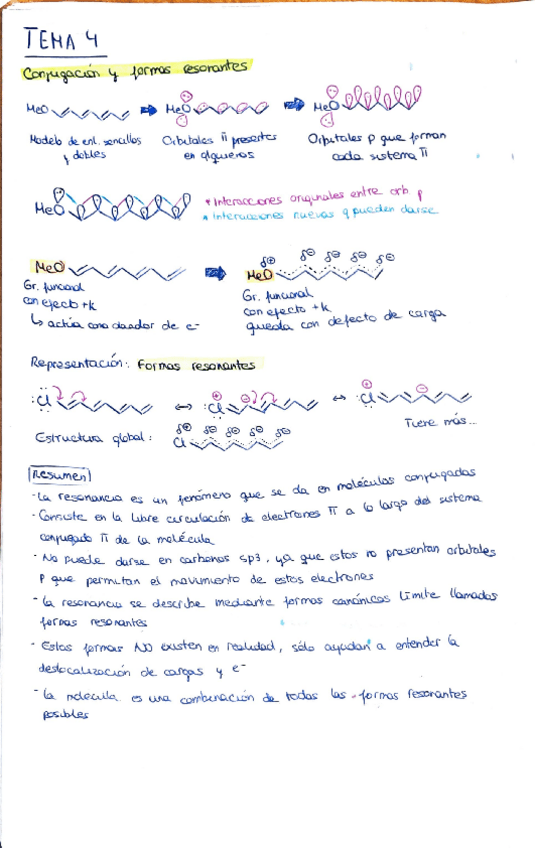 TEMA 4
Conjugación y formas resonantes
MeO
MeO
MeO
Modelo de enl. sencillos
y dobles
Orbitales π presentes
en alquenos
Orbitales p que forman
cada sistema π
MeO
* Interacciones originales entre orb p
* Interacciones nuevas q pueden darse
MeO
Gr. funcional
con efecto +k
↳ actúa como dador de e-
δ⊕ δ⊖ δ⊖ δ⊖ δ⊖
MeO
Gr. funcional
con efecto +k
queda con defecto de carga
Representación: Formas resonantes
Cl ↔ Cl ↔ Cl
Tiene más...
Estructura global:
δ⊕ δ⊖ δ⊖ δ⊖ δ⊖
Cl
Resumen
- La resonancia es un fenómeno que se da en moléculas conjugadas
- Consiste en la libre circulación de electrones π a lo largo del sistema
conjugado π de la molécula
- No puede darse en carbonos sp3, ya que estos no presentan orbitales
p que permitan el movimiento de estos electrones
- La resonancia se describe mediante formas canónicas límite llamadas
formas resonantes
- Estas formas NO existen en realidad, sólo ayudan a entender la
deslocalización de cargas y e-
- La molécula es una combinación de todas las formas resonantes
posibles